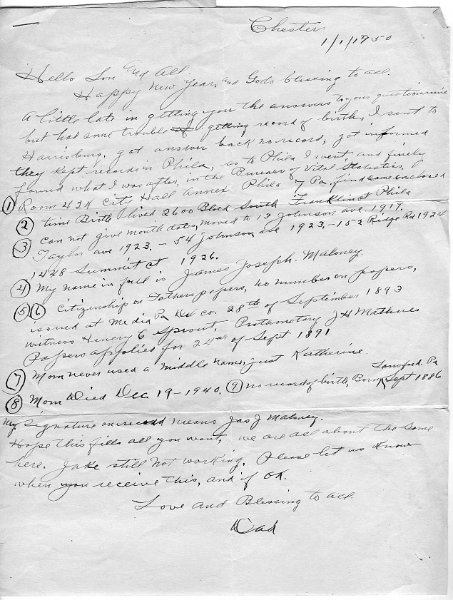 Chester
1/1/1950
Hello Son and All.
Happy New Year, and Gods blessing to all.
A little late in getting you the answers to your questionnaire
but had some trouble getting record of birth, I sent to
Harrisburg, got answer back no record, got informed
they kept records in Phila, so to Phila I went, and finely
found what I was after, in the Bureau of Vital Statistics,
① Room 434 City Hall Annex Phila 7 Pa, find same enclosed
② time Birth lived 2600 Block South Franklin st Phila
③ Can not give month date, moved to 19 Johnson ave 1917.
Taylor ave 1923, - 54 Johnson ave 1923, - 152 Ridge Rd 1924
1428 Summit st 1926.
④ My name in full is James Joseph Maloney
⑤⑥ Citizenship on Fathers papers, no number on papers,
issued at Media Pa Del Co. 28th of September 1893
witness Henry C Sprout. Protometary J H Mathues
Papers applied for 24th of Sept 1891
⑦ Mom never used a middle name, just Katherine.
⑧ Mom Died Dec 19-1940. ⑨ no record of birth, Born Sept 1886
My Signature on record means Jas J Maloney.
Hope this fills all you want, we are all about the same
here. Jake still not working. Please let us know
when you receive this, and if OK.
Love and Blessing to all
Dad